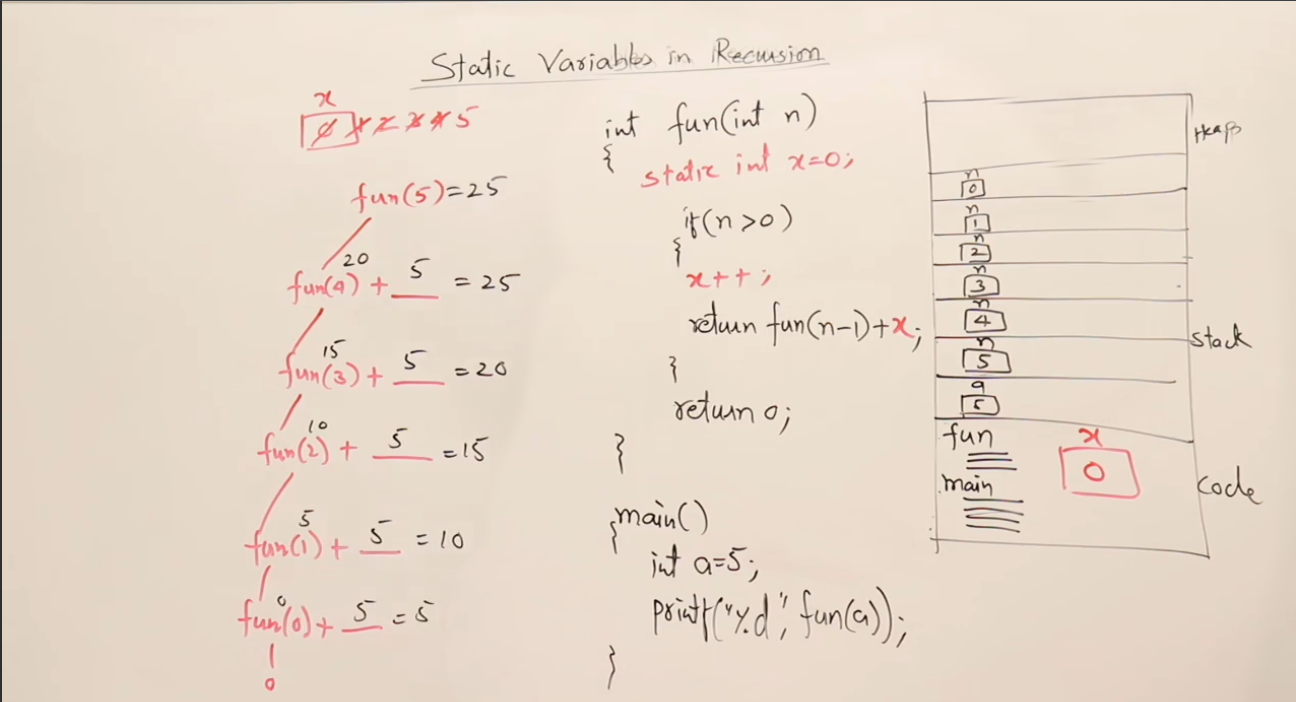 Static Variables in Recursion
x
0 1 2 3 4 5
fun(5)=25
20
fun(4) + 5 = 25
15
fun(3) + 5 = 20
10
fun(2) + 5 = 15
5
fun(1) + 5 = 10
0
fun(0) + 5 = 5
0
int fun(int n)
{
static int x=0;
if(n>0)
{
x++;
return fun(n-1)+x;
}
return 0;
}
main()
{
int a=5;
printf("%d", fun(a));
}
Heap
n
0
n
1
n
2
n
3
n
4
n
5
a
5
stack
fun
main
x
0
code